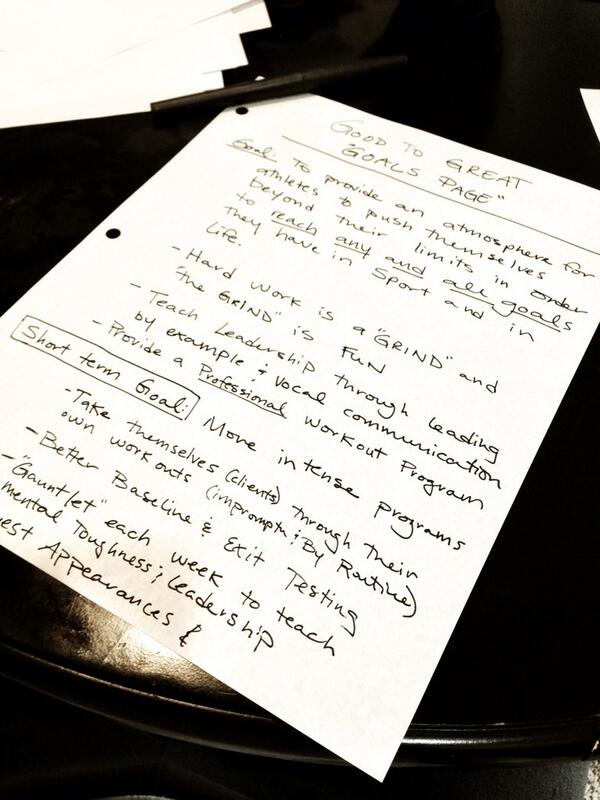 GOOD TO GREAT
"GOALS PAGE"
Goal: To provide an atmosphere for
athletes to push themselves
beyond their limits in order
to reach any and all goals
they have in Sport and in
Life.
- Hard work is a "GRIND" and
"the GRIND" is FUN
- Teach Leadership through leading
by example & vocal communication
- Provide a Professional workout Program
Short term Goal: More intense programs
- Take themselves (clients) through their
own workouts (impromptu & By Routine)
- Better Baseline & Exit Testing
- "Gauntlet" each week to teach
mental Toughness & leadership
Appearances &